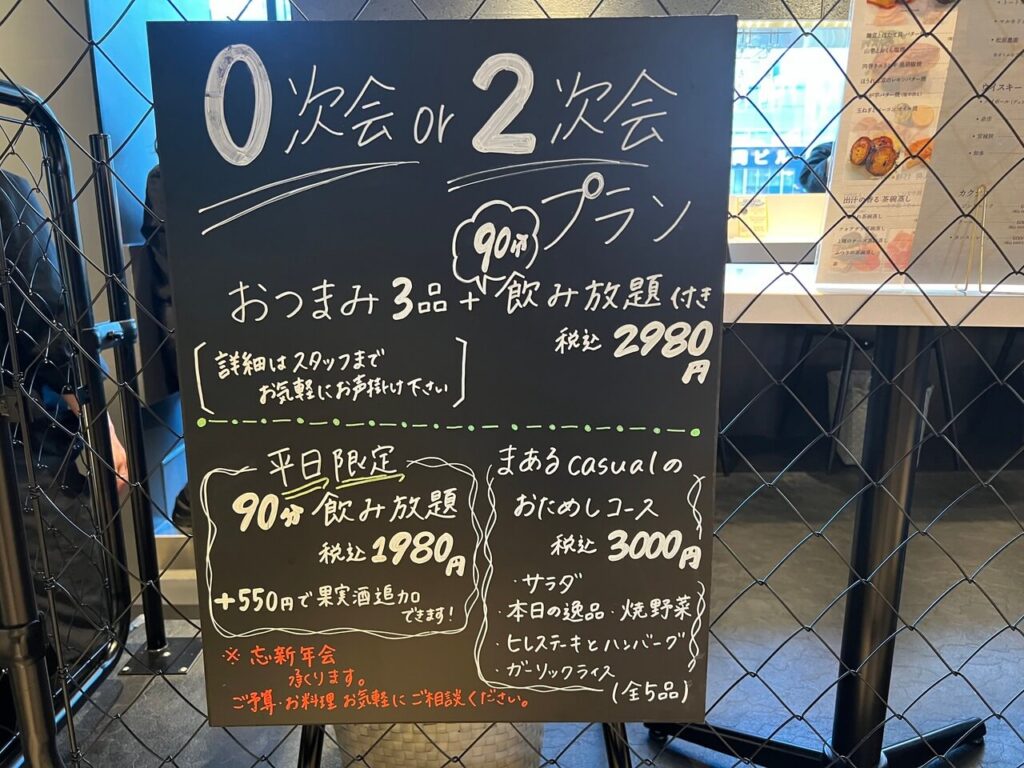 0次会 or 2次会
プラン
90分
おつまみ3品+飲み放題付き
税込 2980
円
詳細はスタッフまで
お気軽にお声掛け下さい
平日限定
90分 飲み放題
税込 1980円
+550円で果実酒追加
できます!
※ 忘新年会
承ります。
ご予算・お料理 お気軽にご相談ください。
まあるcasualの
おためしコース
税込 3000円
・サラダ
・本日の逸品・焼野菜
・ヒレステーキとハンバーグ
・ガーリックライス
(全5品)
出汁の香る 茶碗蒸し
ウイスキー